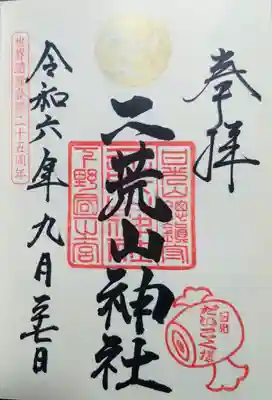 奉拝
日光山總鎮守
二荒山神社
下野国一之宮
令和六年九月廿七日
世界遺産登録二十五周年
日光
だいこく様